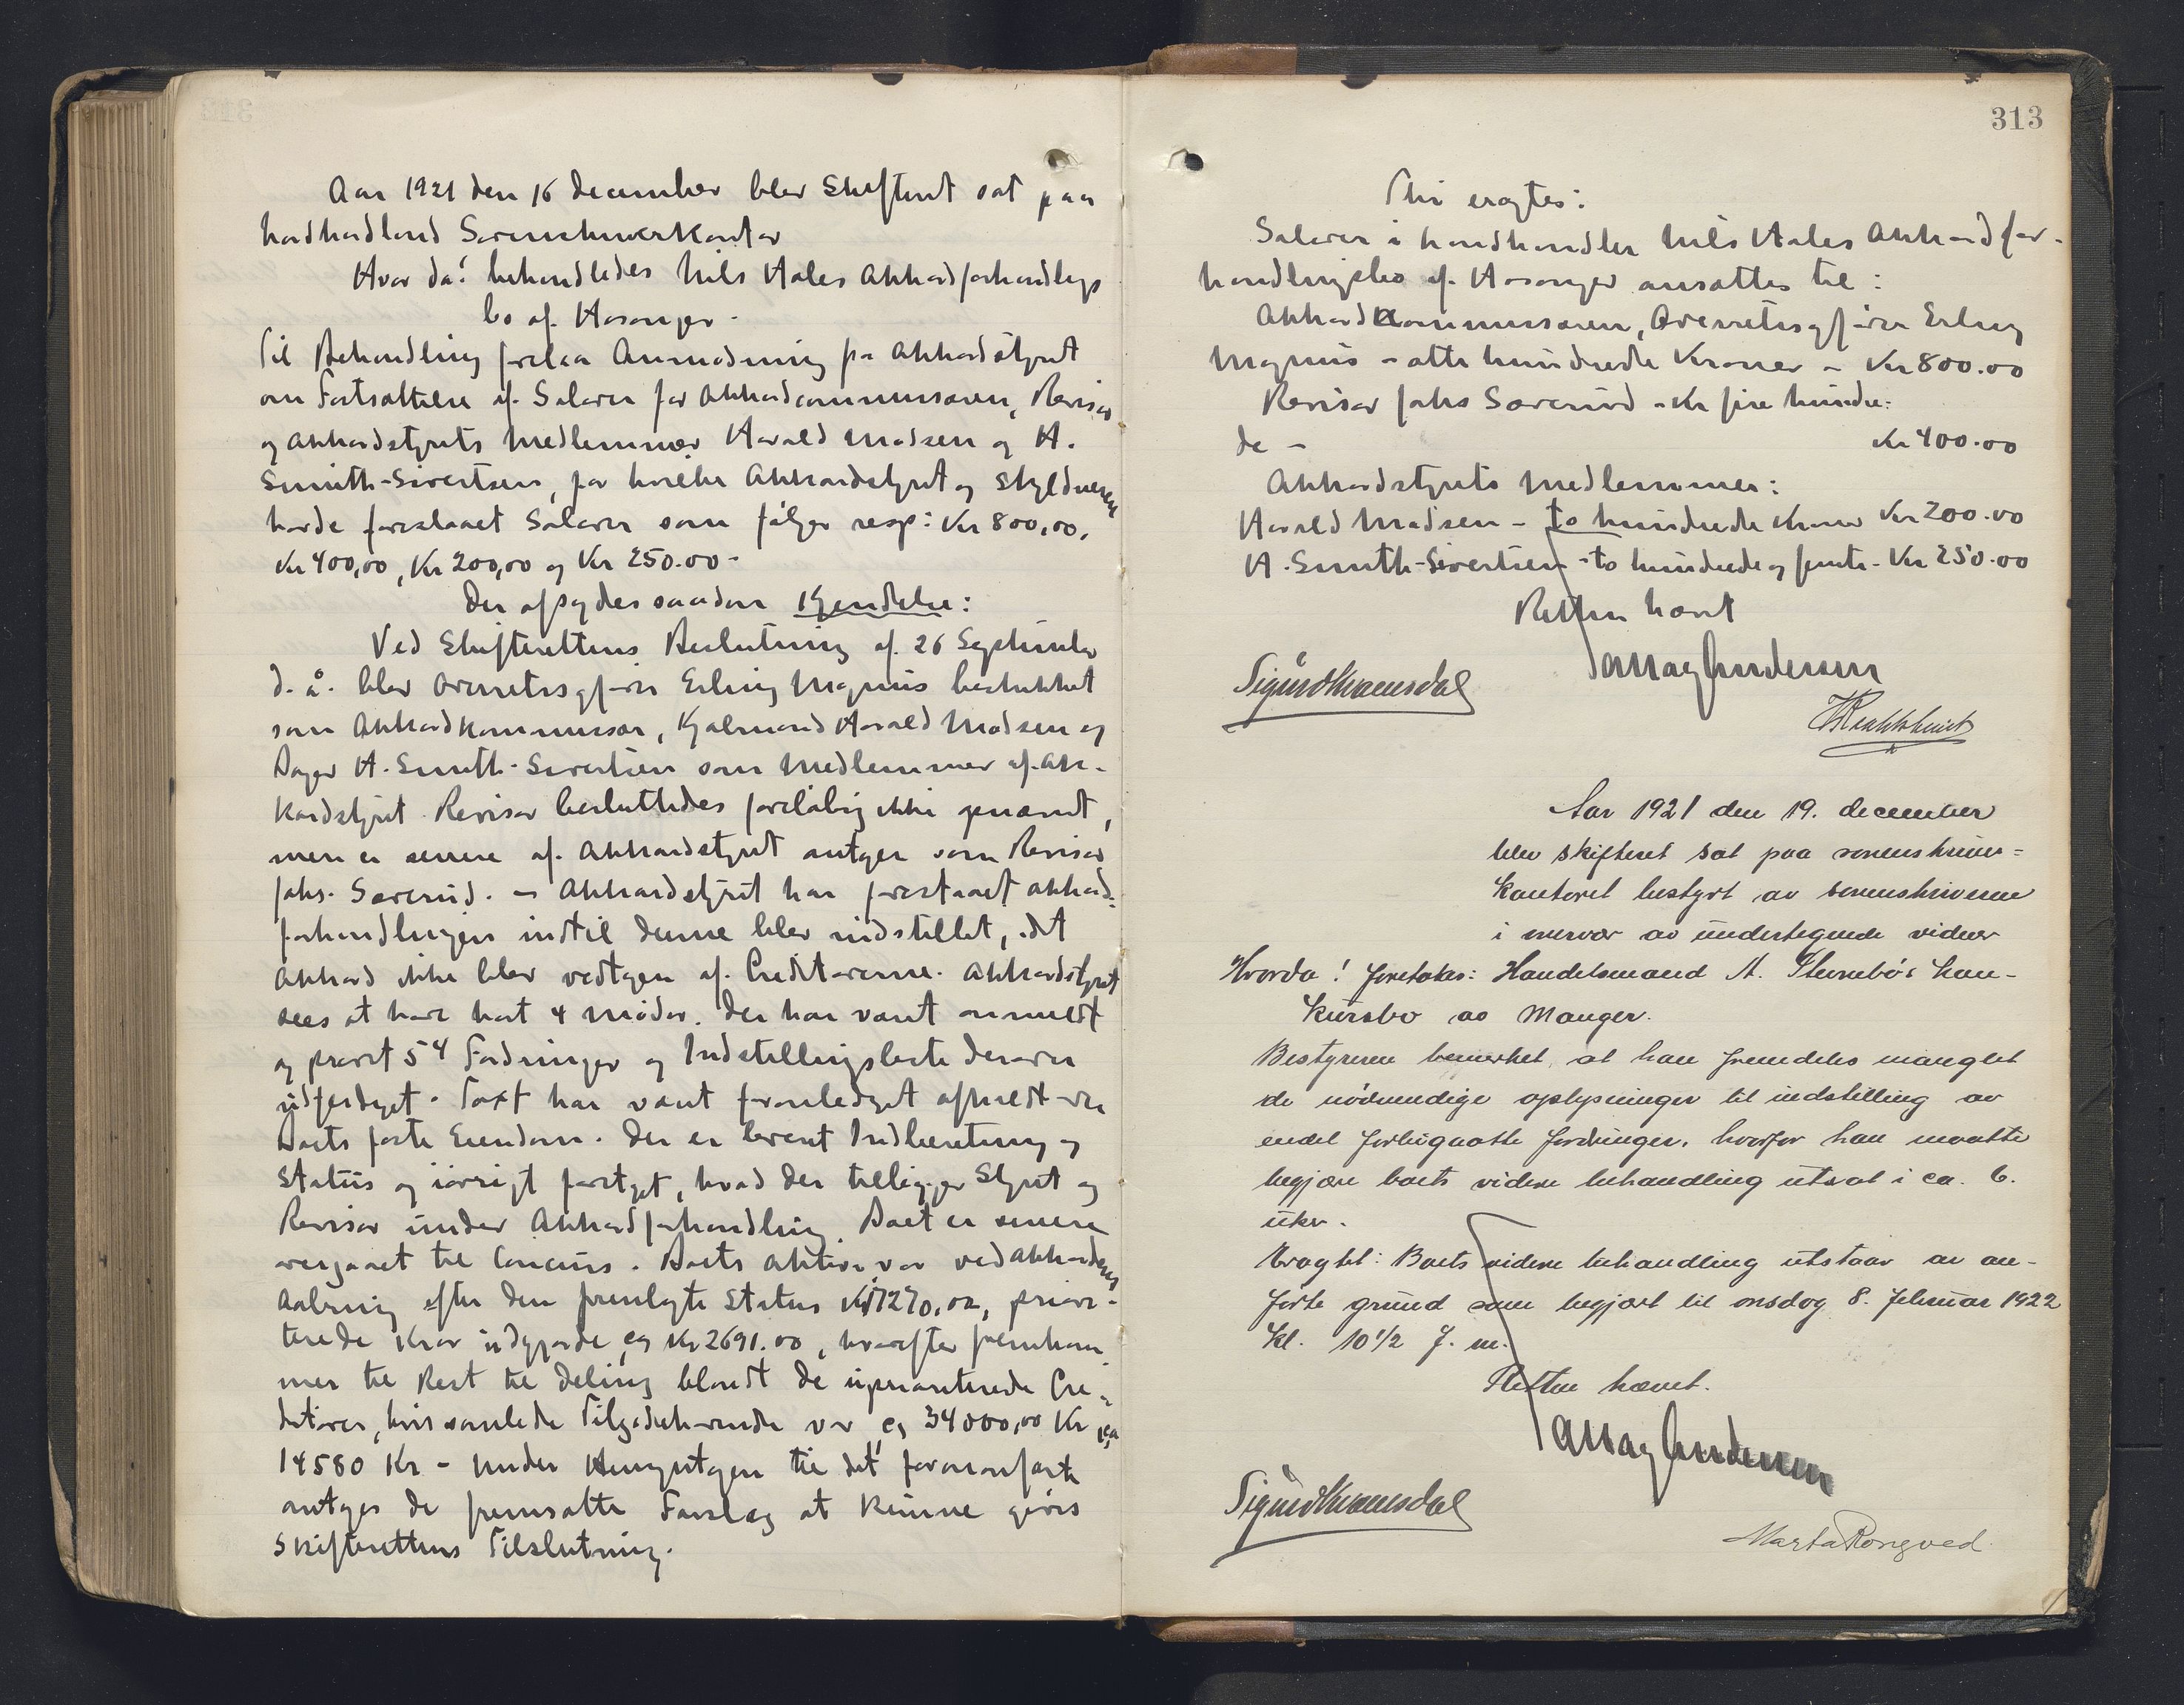 Aar 1921 den 16 december blev Skifteret sat paa
Nordhordland Sorenskriverkontor
Hvor da! behandledes Nils Hales Akkordforhandlings
bo af Hosanger.
Til Behandling forelaa Anmodning fra Akkordstyret
om Fastsættelse af Salærer for Akkordcommissæren, Revisor
og Akkordstyrets Medlemmer Harald Madsen og H.
Smith-Sivertsen, for hvilke Akkordstyret og Skyldneren
havde foreslaaet Salærer som følger resp: Kr 800,00,
Kr 400,00, Kr 200,00 og Kr 250.00-
Der afsagdes saadan Kjendelse:
Ved Skifterettens Beslutning af 26 September
d. å. blev Overretssagfører Erling Magnus beskikket
som Akkordkommissær, Kjøbmand Harald Madsen og
Bager H. Smith-Sivertsen som Medlemmer af Ak-
kordstyret. Revisor besluttedes foreløbig ikke opnævnt,
men er senere af Akkordstyret antagen som Revisor
Johs. Sørerud. - Akkordstyret har forestaaet Akkord-
forhandlingen indtil denne blev indstillet, idet
Akkord ikke blev vedtagen af Creditorerne. Akkordstyret
sees at have havt 4 Møder. Der har været anmeldt
og prøvet 54 Fordringer og Indstillingsliste derover
udfærdiget. Taxt har været foranlediget afholdt over
Boets faste Eiendom. Der er levert Indberetning og
Status og iøvrigt foretaget, hvad der tilligger Styret og
Revisor under Akkordforhandling. Boet er senere
overgaaet til Concurs. Boets Aktiva var ved Akkordens
Aabning efter den fremlagte Status Kr 17270,02, priori-
terede Krav udgjorde ca Kr 2691.00, hvorefter fremkom
mer til Rest til Deling blandt de uprioriterede Cre-
ditorer, hvis samlede Tilgodehavende var ca 34000,00 Kr ca
14580 Kr - Under Hensyntagen til det forananførte
antages de fremsatte Forslag at kunne gives
Skifterettens Tilslutning.
313
Thi eragtes:
Salærer i Landhandler Nils Hales Akkordfor-
handlingsbo af Hosanger ansættes til:
Akkordkommissæren, Overretssagfører Erling
Magnus - otte hundrede Kroner - Kr 800.00
Revisor Johs Sørerud - Kr fire hundre-
de - Kr 400.00
Akkordstyrets Medlemmer:
Harald Madsen - to hundrede Kroner Kr 200.00
H. Smith-Sivertsen - to hundrede og femti - Kr 250.00
Retten hævet
A Mag Andersen
Sigurd Kvamsdal
Aar 1921 den 19. december
blev skifteret sat paa sorenskriver=
kontoret bestyrt av sorenskriveren
i nærvær av undertegnede vidner
Hvorda! foretokes: Handelsmand A. Sternebøs kon-
kursbo av Manger.
Bestyreren bemerket, at han fremdeles manglet
de nødvendige oplysninger til indstilling av
endel forhigaatte fordringer, hvorfor han maatte
begjære boets videre behandling utsat i ca. 6.
uker.
Eragtet: Boets videre behandling utstaar av an-
førte grund som begjært til onsdag 8. februar 1922
kl. 10 1/2 f. m.
Retten hævet.
A Mag Andersen
Sigurd Kvamsdal
Marta Rongved